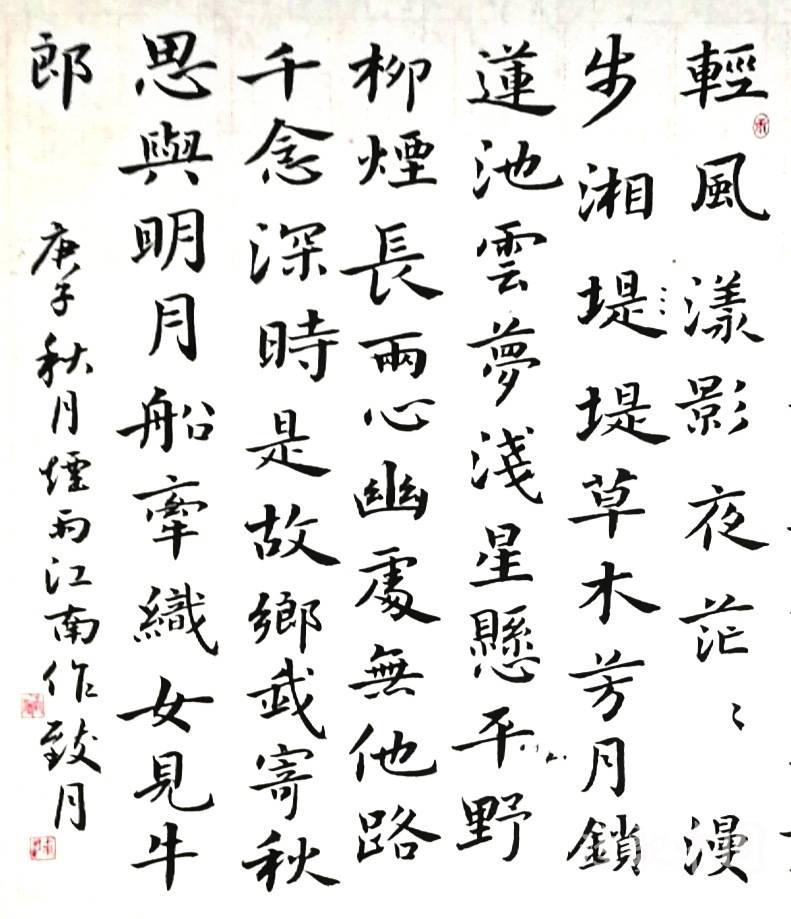 輕風漾影夜茫〻漫
步湘堤堤草木芳月鎖
蓮池雲夢淺星懸平野
柳煙長兩心幽處無他路
千念深時是故鄉我寄秋
思與明月船牽織女見牛
郎
庚子秋月煙雨江南作致月